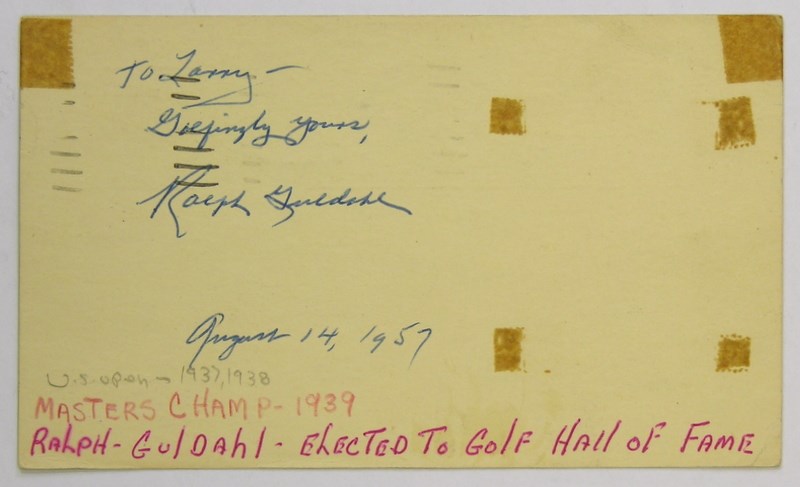 To Larry -
Golfingly yours,
Ralph Guldahl
August 14, 1957
U.S. open - 1937, 1938
MASTERS CHAMP - 1939
RALPH - GulDAHl - ElECTED To GolF HAll oF FAME